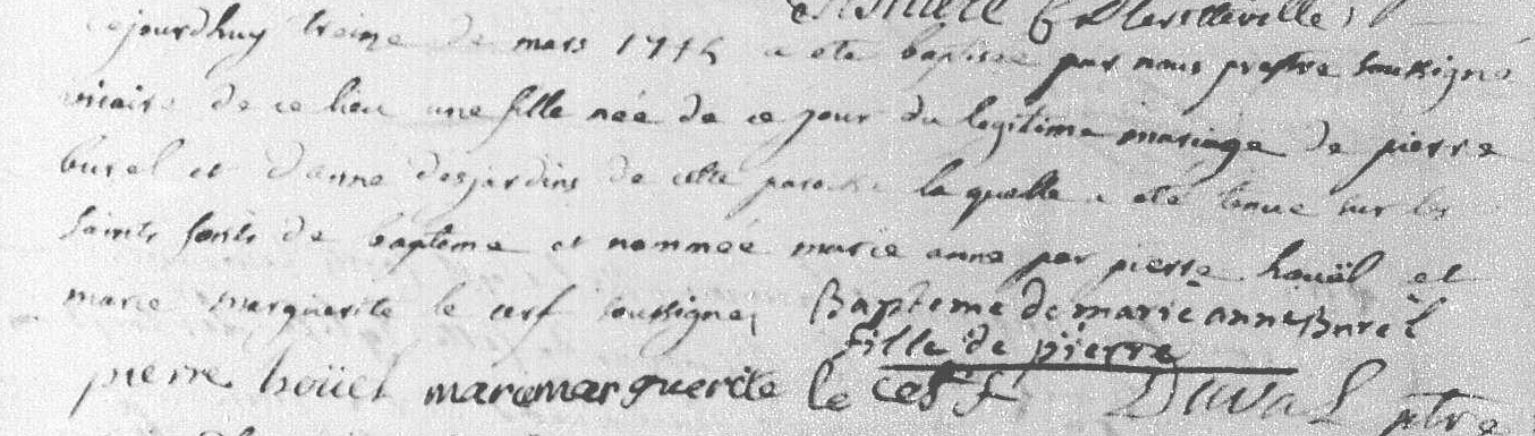 ajourdhuy treize de mars 1715 a ete baptisée par nous prestre soussigné
vicaire de ce lieu une fille née de ce jour du legitime mariage de pierre
burel et d'anne desjardins de cette paroisse la quelle a eté tenue sur les
saints fonts de baptème et nommée marie anne par pierre houël et
marie marguerite le cerf soussignez
Bapteme de marie anne Burel
fille de pierre
pierre houel mare marguerite le cerf Duval ptre